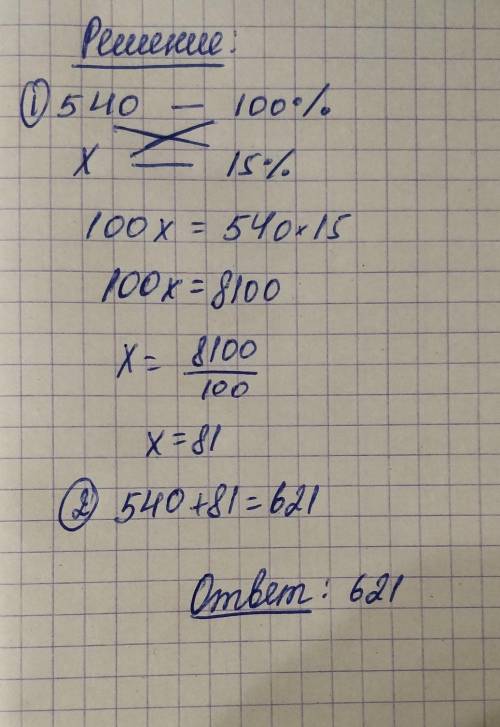 Решение:
① 540 — 100%
x — 15%
100x = 540×15
100x = 8100
x = 8100/100
x = 81
② 540+81=621
Ответ: 621